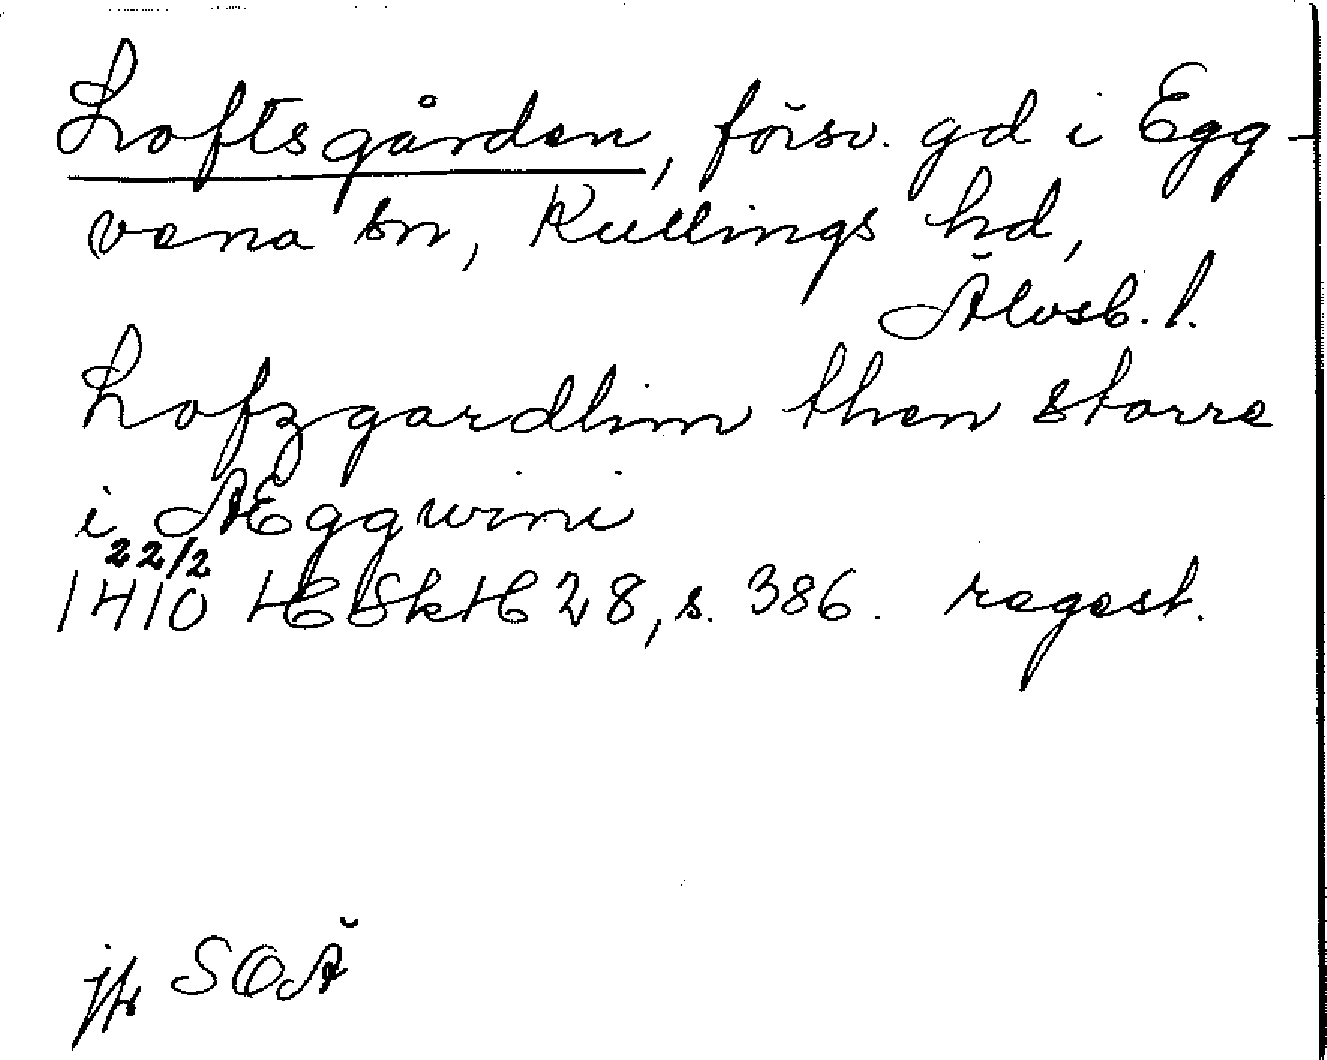 Loftsgården, försv. gd i Egg-
vena sn, Kullings hd,
Älvsb. l.
Lofzgardhim then starre
i ÆEggwini
22/2
1410 HSkH 28, s. 386. regest.
jfr SOÄ